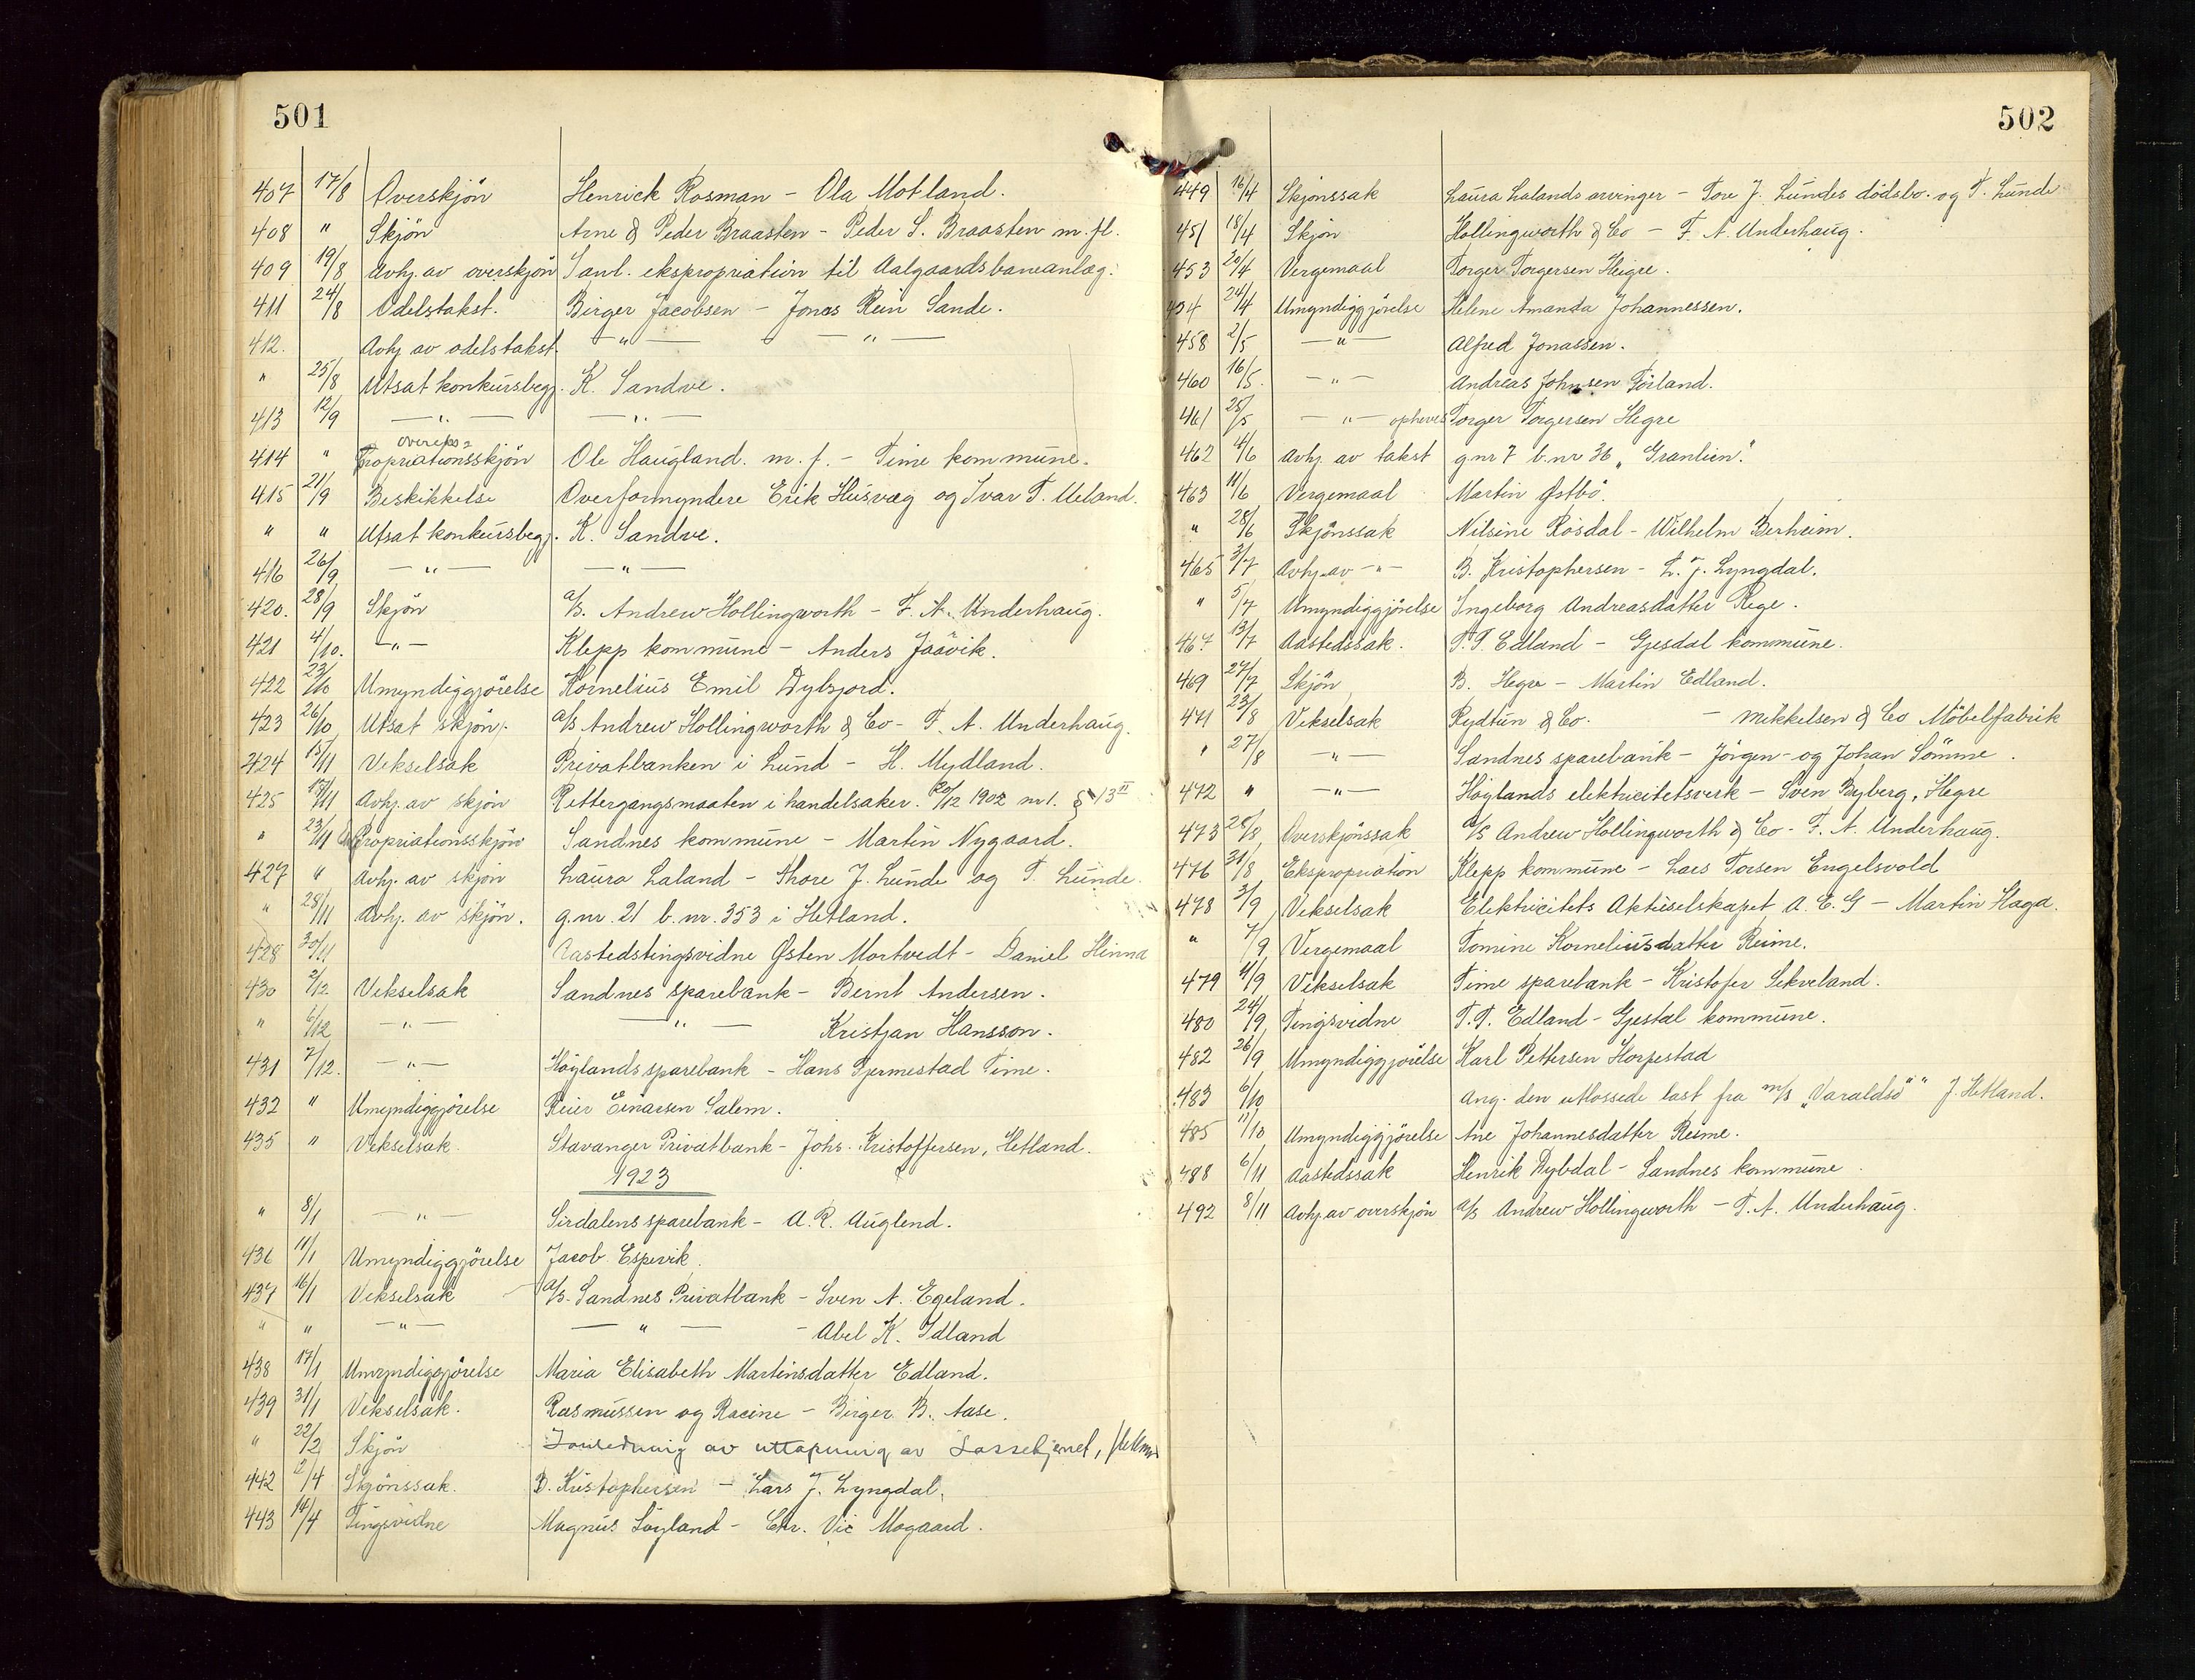 501
407 17/8 Overskjön Henrick Rosman - Ola Motland.
408 " Skjön Arne & Peder Braasten - Peder S. Braasten m. fl.
409 19/8 Avhj. av overskjön Saml. ekspropriation til Aalgaardsbaneanlæg.
411 24/8 Odelstakst. Birger Jacobsen - Jonas Rein Sande.
412. Avhj av odelstakst. — " — — " —
" 25/8 Utsat konkursbegj. K. Sandve.
413 12/9 — " — — " —
overeks=
414 " propriationsskjön Ole Haugland. m. f. - Time kommune.
415 21/9 Beskikkelse Overformyndere Erik Husvæg og Ivar T. Ueland.
" " Utsat konkursbegj. K. Sandve.
416 26/9 — " — — " —
420. 28/9 Skjön a/s. Andrew Hollingworth - F. A. Underhaug.
421 4/10. — " — Klepp kommune - Anders Jaavik.
422 23/10 Umyndiggjörelse Kornelius Emil Dybsjord.
423 26/10 Utsat skjön. a/s Andrew Hollingworth & Co - T. A. Underhaug.
424 15/11 Vekselsak Privatbanken i Lund - H. Mydland.
425 17/11 Avhj. av skjön Rettergangsmaaten i handelsaker. 20/12 1902 nr 1. § 13 II
" 23/11 Expropriationsskjön Sandnes kommune - Martin Nygaard.
427 " Avhj. av skjön Laura Laland - Thore J. Lunde og T. Lunde.
" 28/11 Avhj. av skjön. g.nr. 21 b.nr. 353 i Hetland.
428 30/11 Aastedstingsvidne Østen Mortvedt - Daniel Hinna
430 2/12 Vekselsak Sandnes sparebank - Bernt Andersen.
" 6/12 — " — — " — Kristjan Hansson.
431 7/12. — " — Höylands sparebank - Hans Gjermestad Time.
432 " Umyndiggjörelse Reier Einarsen Salem.
435 " Vekselsak. Stavanger Privatbank - Johs. Kristoffersen, Hetland.
1923
" 8/1 — " — Sirdalens sparebank - A. R. Auglend.
436 11/1 Umyndiggjörelse Jacob Espevik.
437 16/1 Vekselsak a/s. Sandnes Privatbank - Sven A. Egeland.
" " — " — — " — - Abel K. Idland
438 17/1 Umyndiggjörelse Maria Elisabeth Martinsdatter Edland.
439 31/1 Vekselsak. Rasmussen og Racine - Birger B. Aase.
" 22/2 Skjön av uttapning av
442 2/4 Skjönssak. B. Kristophersen - Lars J. Lyngdal.
443 14/4 Tingsvidne Magnus Löyland - Chr. Vic Mogaard.
502
449 16/4 Skjönssak Laura Lalands arvinger - Tore J. Lundes dödsbo. og T. Lunde
451 18/4 Skjön Hollingworth & Co - F. A. Underhaug.
453 20/4 Vergemaal Torger Torgersen Heigre.
454 24/4 Umyndiggjörelse Helene Amanda Johannessen.
458 2/5 — " — Alfred Jonassen.
460 16/5. — " — Andreas Johnsen Förland.
461 25/5 — " — opheves Torger Torgersen Hegre
462 4/6 Avhj. av takst g nr 7 b. nr 36 „ Granlien".
463 11/6 Vergemaal Martin Østbö.
" 28/6 Skjönssak Nilsine Rosdal - Wilhelm Berheim.
465 3/7 Avhj. av — " — B. Kristophersen - L. J. Lyngdal.
" 5/7 Umyndiggjörelse Ingeborg Andreasdatter Rege.
467 13/7 Aastedssak. T. T. Edland - Gjesdal kommune.
469 27/7 Skjön B. Hegre - Martin Edland.
471 23/8 Vekselsak Rydtun & Co. - Mikkelsen & Co Möbelfabrik
" 27/8 — " — Sandnes sparebank - Jörgen - og Johan Sömme.
472 " — " — Höylands elektricitetsverk - Sven Byberg, Hegre
473 28/8 Overskjönssak a/s Andrew Hollingworth & Co - F. A. Underhaug.
476 31/8 Ekspropriation Klepp kommune - Lars Torsen Engelsvold
478 3/9 Vekselsak Elektricitets Aktieselskapet A. E. G - Martin Haga.
" 7/9 Vergemaal Tomine Korneliusdatter Reime.
479 11/9 Vekselsak Time sparebank - Kristofer Sekveland.
480 24/9 Tingsvidne T. T. Edland - Gjestal kommune.
482 26/9 Umyndiggjörelse Karl Pettersen Horpestad
483 6/10 Ang. den utlossede last fra m/s „Varaldsö" J. Hetland.
485 11/10 Umyndiggjörelse Ane Johannesdatter Reime.
488 6/11 Aastedssak Henrik Dybdal - Sandnes kommune.
492 8/11 Avhj. av overskjön a/s Andrew Hollingworth - T. A. Underhaug.